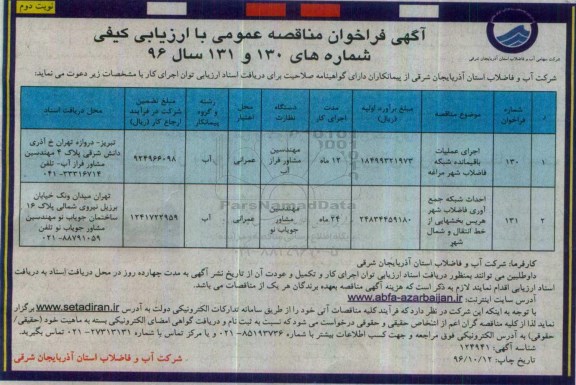 نوبت دوم
آگهی فراخوان مناقصه عمومی با ارزیابی کیفی
شماره های ۱۳۰ و ۱۳۱ سال ۹۶
شرکت آب و فاضلاب استان آذربایجان شرقی از پیمانکاران دارای گواهینامه صلاحیت برای دریافت اسناد ارزیابی توان اجرای کار با مشخصات زیر دعوت می نماید:
شماره فراخوان
موضوع مناقصه
مبلغ برآورد اولیه (ریال)
مدت اجرای کار
دستگاه نظارت
محل اعتبار
رشته و گروه پیمانکار
مبلغ تضمین شرکت در فرآیند ارجاع کار (ریال)
محل دریافت اسناد
۱
۱۳۰
اجرای عملیات باقیمانده شبکه فاضلاب شهر مراغه
۱۸۴۹۹۳۲۱۹۷۳
۱۲ ماه
مهندسین مشاور فراز آب
عمرانی
آب
۹۲۴۹۶۶۰۹۸
تبریز- دروازه تهران خ آذری دانش شرقی پلاک ۴ مهندسین مشاور فراز آب- تلفن ۳۳۳۱۶۷۱۴-۰۴۱
۲
۱۳۱
احداث شبکه جمع آوری فاضلاب شهر هریس بخشهایی از خط انتقال و شمال شهر
۲۴۸۳۴۴۵۹۱۸۰
۲۴ ماه
مهندسین مشاور جویاب نو
عمرانی
آب
۱۲۴۱۷۲۲۹۵۹
تهران میدان ونک خیابان برزیل نیروی شمالی پلاک ۱۶ ساختمان جویاب نو مهندسین مشاور جویاب نو تلفن ۸۸۷۹۱۰۵۹-۰۲۱
ParsNamadData
کارفرما: شرکت آب و فاضلاب استان آذربایجان شرقی
داوطلبین می توانند بمنظور دریافت اسناد ارزیابی توان اجرای کار و تکمیل و عودت آن از تاریخ نشر آگهی به مدت چهارده روز در محل دریافت اسناد به دریافت
اسناد ارزیابی اقدام نمایند. لازم به ذکر است که هزینه آگهی مناقصه بعهده برندگان هر یک از مناقصات می باشد.
آدرس سایت اینترنت: www.abfa-azarbaijan.ir
با توجه به اینکه این شرکت در نظر دارد که فرآیند کلیه مناقصات آتی خود را از طریق سامانه تدارکات الکترونیکی دولت به آدرس www.setadiran.ir برگزار
نماید لذا از کلیه مناقصه گران اعم از اشخاص حقیقی و حقوقی درخواست می شود که نسبت به ثبت نام و دریافت گواهی امضای الکترونیکی بسته به ماهیت خود (حقیقی/
حقوقی) به آدرس الکترونیکی فوق مراجعه و جهت کسب اطلاعات بیشتر با شماره ۸۵۱۹۳۷۳۶-۰۲۱ و یا مرکز تماس با شماره ۲۷۳۱۳۱۳۱-۰۲۱ تماس بگیرید.
شناسه آگهی: ۱۲۴۹۴۱
تاریخ چاپ: ۹۶/۱۰/۱۲
شرکت آب و فاضلاب استان آذربایجان شرقی